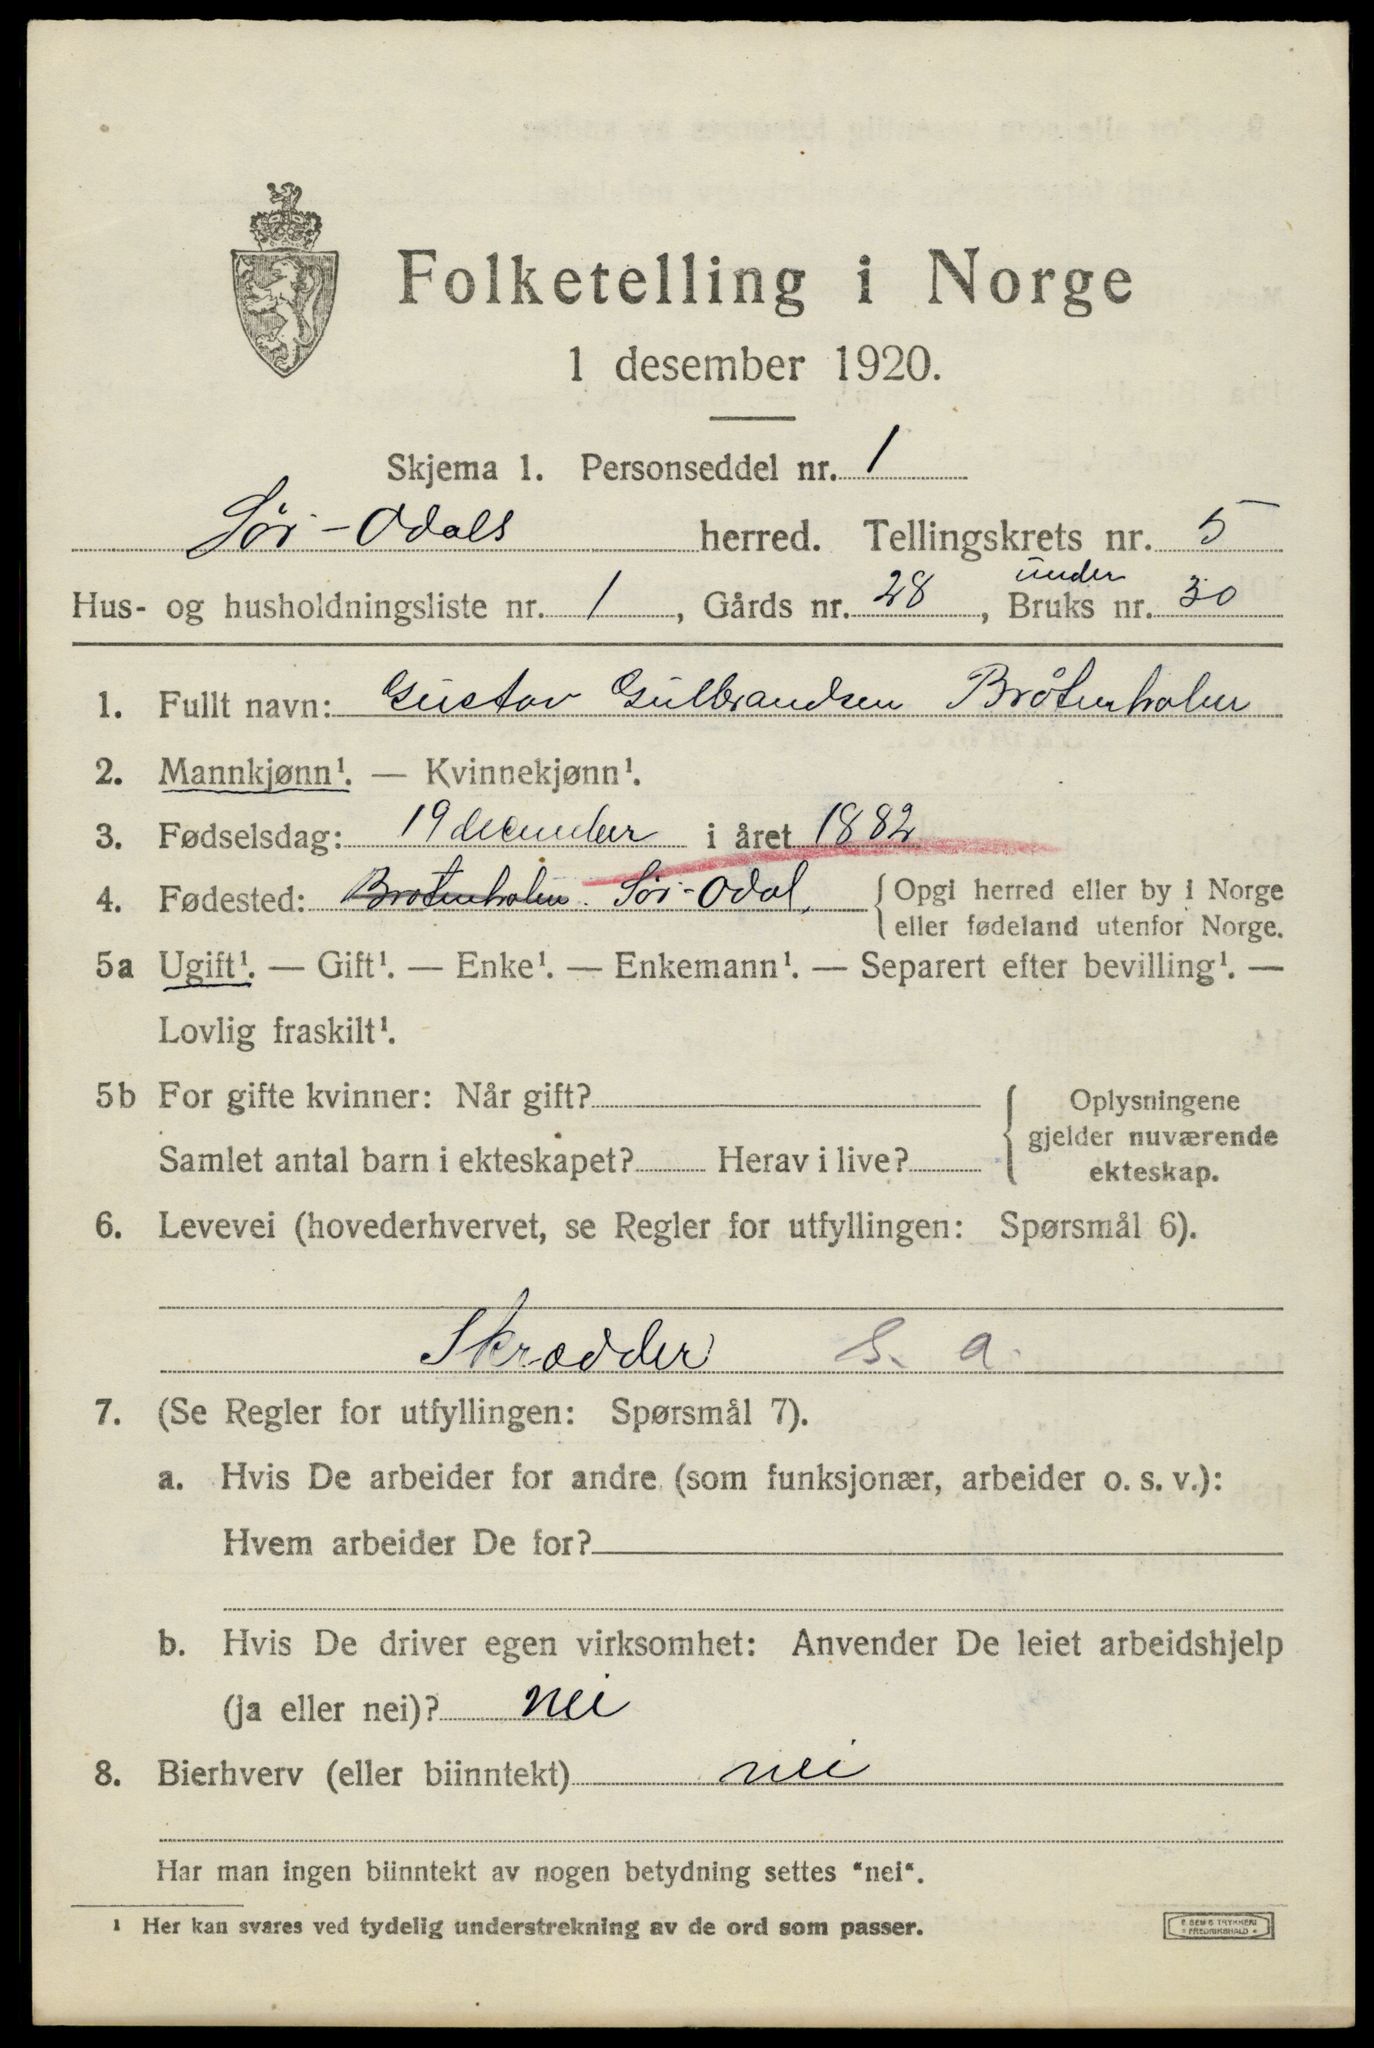 Folketelling i Norge
1 desember 1920.
Skjema 1. Personseddel nr. 1
Sør-Odals herred. Tellingskrets nr. 5
under
Hus- og husholdningsliste nr. 1, Gårds nr. 28, Bruks nr. 30
1. Fullt navn: Gustav Gulbrandsen Bråtenholen
2. Mannkjønn¹. — Kvinnekjønn¹.
3. Fødselsdag: 19 december i året 1882
4. Fødested: Brotenholen. Sør-Odal, { Opgi herred eller by i Norge
eller fødeland utenfor Norge.
5a Ugift¹. — Gift¹. — Enke¹. — Enkemann¹. — Separert efter bevilling¹. —
Lovlig fraskilt¹.
5b For gifte kvinner: Når gift? { Oplysningene
gjelder nuværende
Samlet antal barn i ekteskapet? Herav i live? ekteskap.
6. Levevei (hovederhvervet, se Regler for utfyllingen: Spørsmål 6).
Skrædder S. a.
7. (Se Regler for utfyllingen: Spørsmål 7).
a. Hvis De arbeider for andre (som funksjonær, arbeider o. s. v.):
Hvem arbeider De for?
b. Hvis De driver egen virksomhet: Anvender De leiet arbeidshjelp
(ja eller nei)? nei
8. Bierhverv (eller biinntekt) nei
Har man ingen biinntekt av nogen betydning settes "nei".
¹ Her kan svares ved tydelig understrekning av de ord som passer.
E. SEM'S TRYKKERI
FREDRIKSHALD